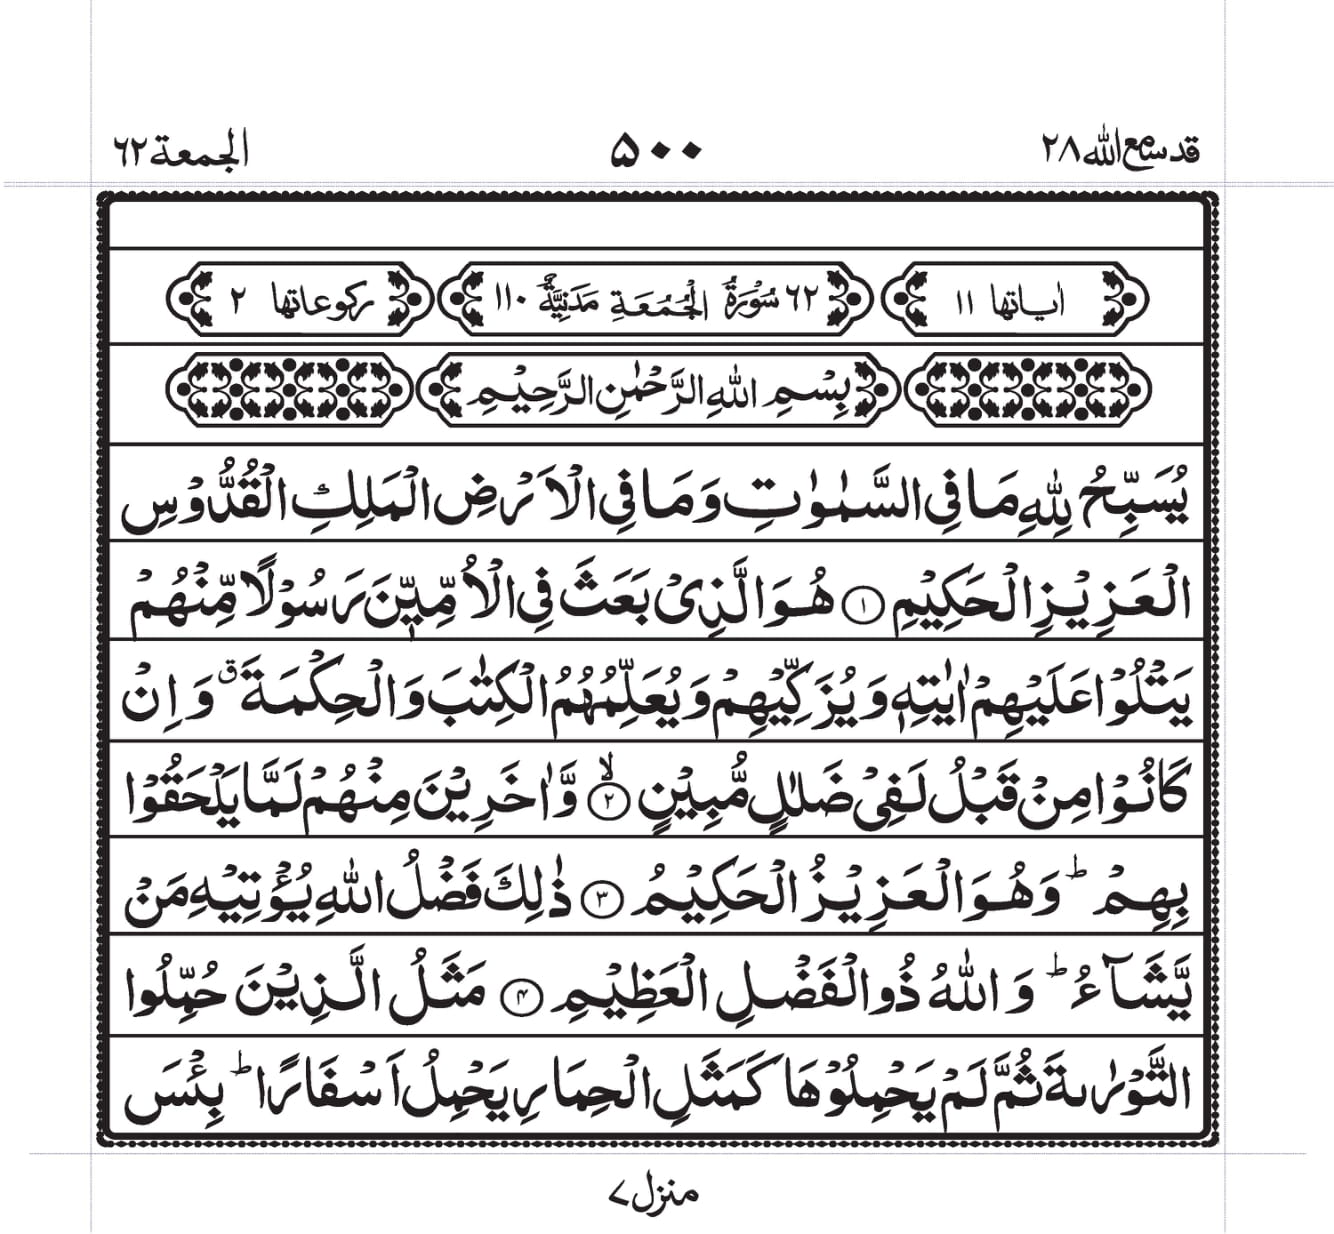 قد سمع الله ٢٨
٥٠٠
الجمعة ٦٢
اٰیاتها ١١
٦٢ سُوْرَةُ الْجُمُعَةِ مَدَنِیَّةٌ ١١٠
ركوعاتها ٢
بِسْمِ اللّٰهِ الرَّحْمٰنِ الرَّحِیْمِ
یُسَبِّحُ لِلّٰهِ مَا فِی السَّمٰوٰتِ وَ مَا فِی الْاَرْضِ الْمَلِكِ الْقُدُّوْسِ
الْعَزِیْزِ الْحَكِیْمِ ١ هُوَ الَّذِیْ بَعَثَ فِی الْاُمِّیّٖنَ رَسُوْلًا مِّنْهُمْ
یَتْلُوْا عَلَیْهِمْ اٰیٰتِهٖ وَ یُزَكِّیْهِمْ وَ یُعَلِّمُهُمُ الْكِتٰبَ وَ الْحِكْمَةَ ۗ وَ اِنْ
كَانُوْا مِنْ قَبْلُ لَفِیْ ضَلٰلٍ مُّبِیْنٍ ۙ٢ وَّ اٰخَرِیْنَ مِنْهُمْ لَمَّا یَلْحَقُوْا
بِهِمْ ؕ وَ هُوَ الْعَزِیْزُ الْحَكِیْمُ ٣ ذٰلِكَ فَضْلُ اللّٰهِ یُؤْتِیْهِ مَنْ
یَّشَآءُ ؕ وَ اللّٰهُ ذُو الْفَضْلِ الْعَظِیْمِ ۴ مَثَلُ الَّذِیْنَ حُمِّلُوا
التَّوْرٰىةَ ثُمَّ لَمْ یَحْمِلُوْهَا كَمَثَلِ الْحِمَارِ یَحْمِلُ اَسْفَارًا ؕ بِئْسَ
منزل ٧